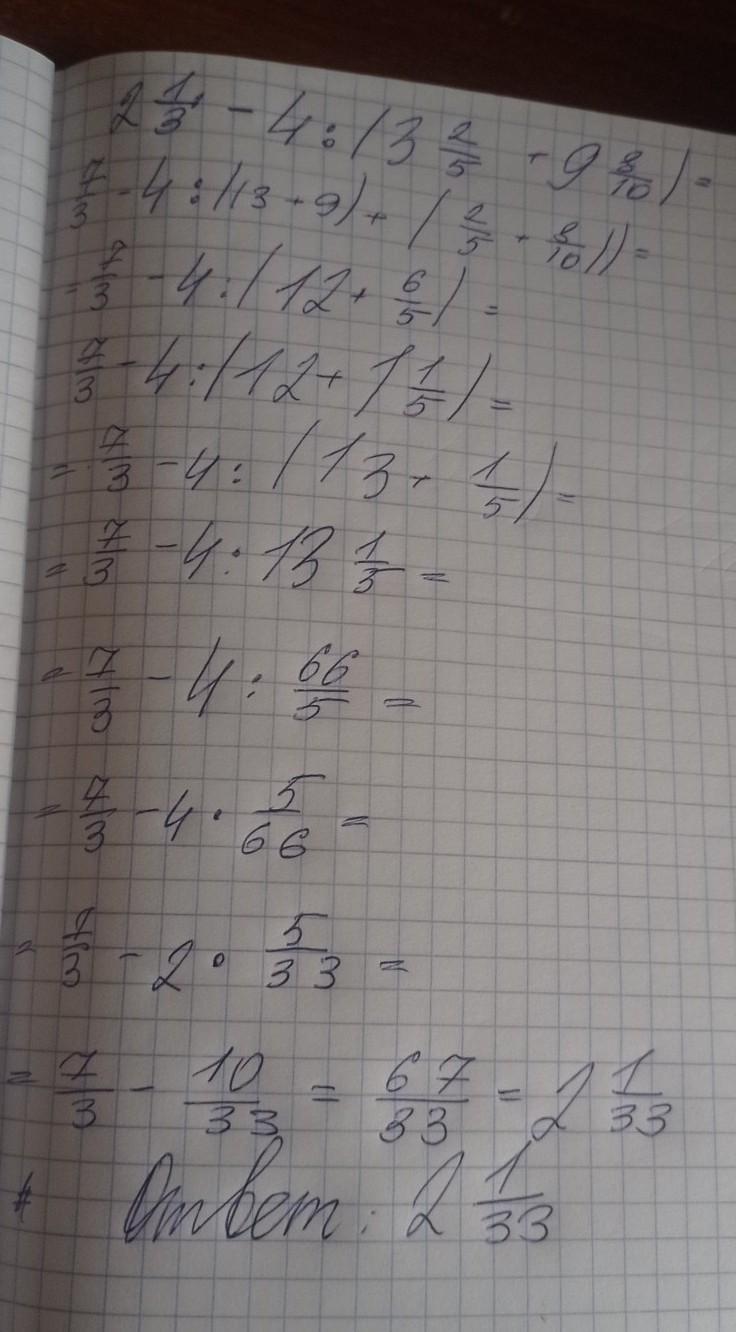 2 1/3 - 4 : (3 2/5 + 9 8/10) =
7/3 - 4 : ((3 + 9) + (2/5 + 8/10)) =
= 7/3 - 4 : (12 + 6/5) =
7/3 - 4 : (12 + 1 1/5) =
= 7/3 - 4 : (13 + 1/5) =
= 7/3 - 4 : 13 1/5 =
= 7/3 - 4 : 66/5 =
= 7/3 - 4 · 5/66 =
= 7/3 - 2 · 5/33 =
= 7/3 - 10/33 = 67/33 = 2 1/33
Ответ: 2 1/33